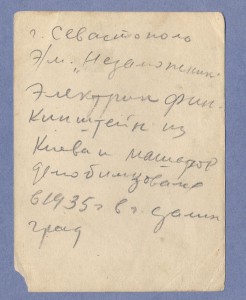 г. Севастополь
э/м. „Незаможник"
Электрик Фин-
кинштейн из
Киева и
демобилизован
в 1935 г в г. Сталин
град